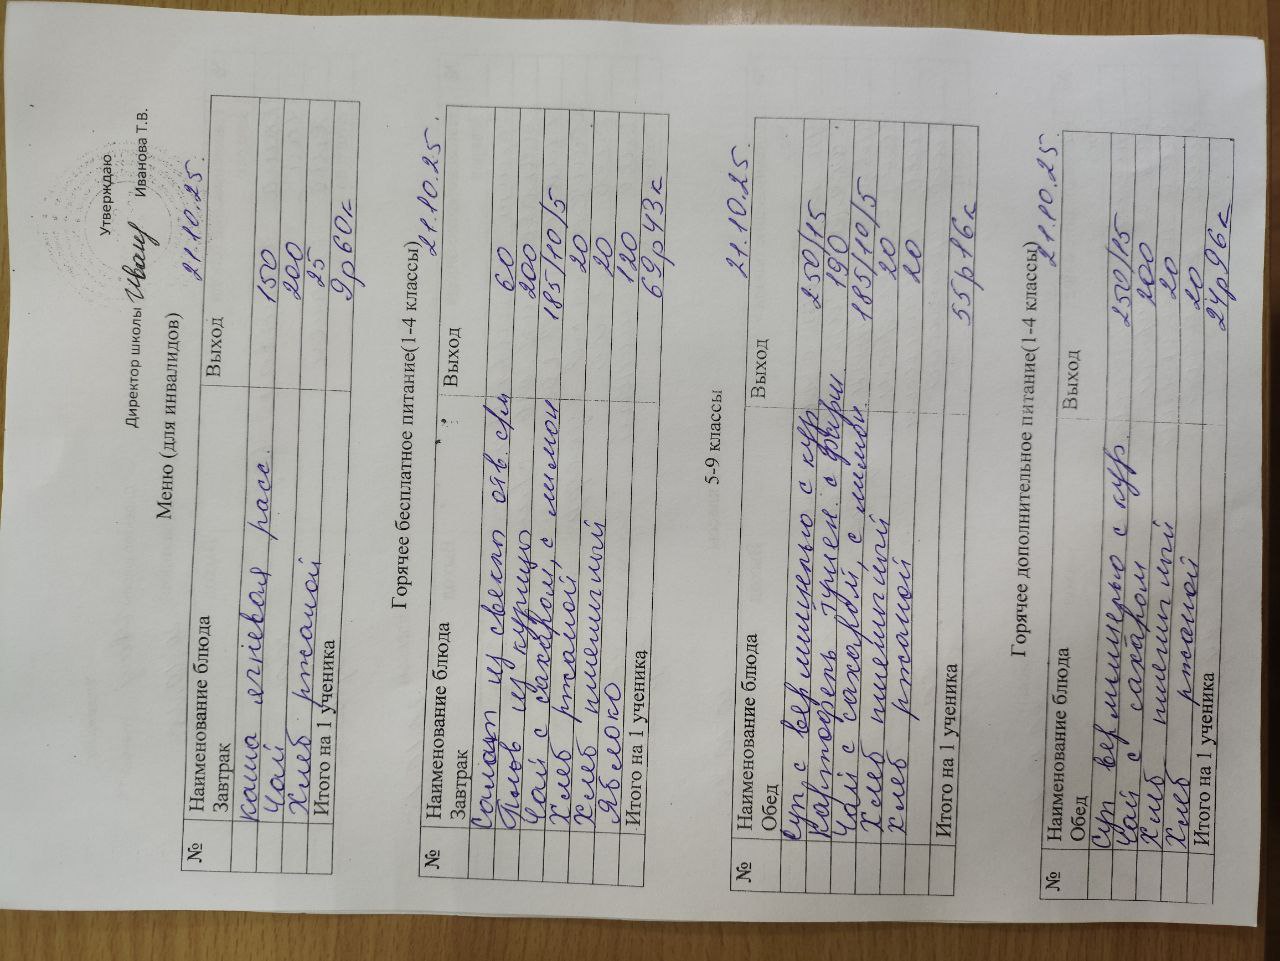 Утверждаю
Директор школы Иванова Т.В.
Меню (для инвалидов) 21.10.25.
№ Наименование блюда Выход
Завтрак
Каша ячневая расс. 150
Чай 200
Хлеб ржаной 25
Итого на 1 ученика 9р60к
Горячее бесплатное питание(1-4 классы) 21.10.25.
№ Наименование блюда Выход
Завтрак
Салат из свеклы отв. с/м 60
Плов из курицы 200
Чай с сахаром, с лимон 185/10/5
Хлеб ржаной 20
Хлеб пшеничный 20
Яблоко 120
Итого на 1 ученика 69р43к
5-9 классы 21.10.25.
№ Наименование блюда Выход
Обед
Суп с вермишелью с кур 250/15
Картофель тушен. с фарш 190
Чай с сахаром, с лимон. 185/10/5
Хлеб пшеничный 20
Хлеб ржаной 20
Итого на 1 ученика 55р16к
Горячее дополнительное питание(1-4 классы) 21.10.25.
№ Наименование блюда Выход
Обед
Суп вермишелью с кур. 250/15
Чай с сахаром 200
Хлеб пшеничный 20
Хлеб ржаной 20
Итого на 1 ученика 24р96к